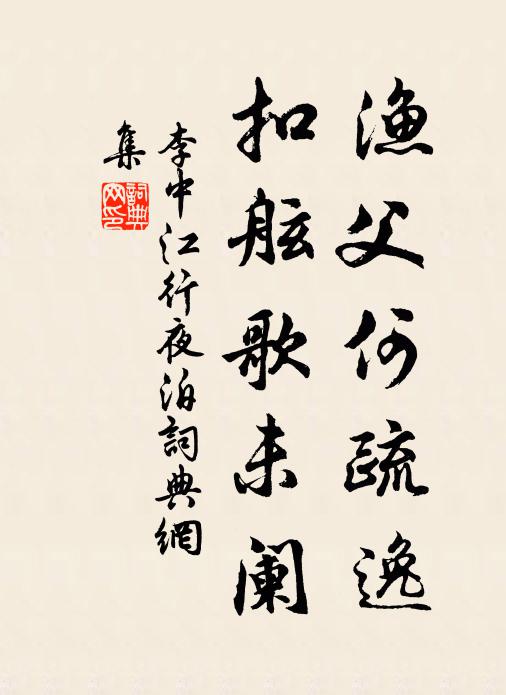 渔父何疏逸
扣舷歌未阑
李中江行夜泊詞典網
集
詞典网印